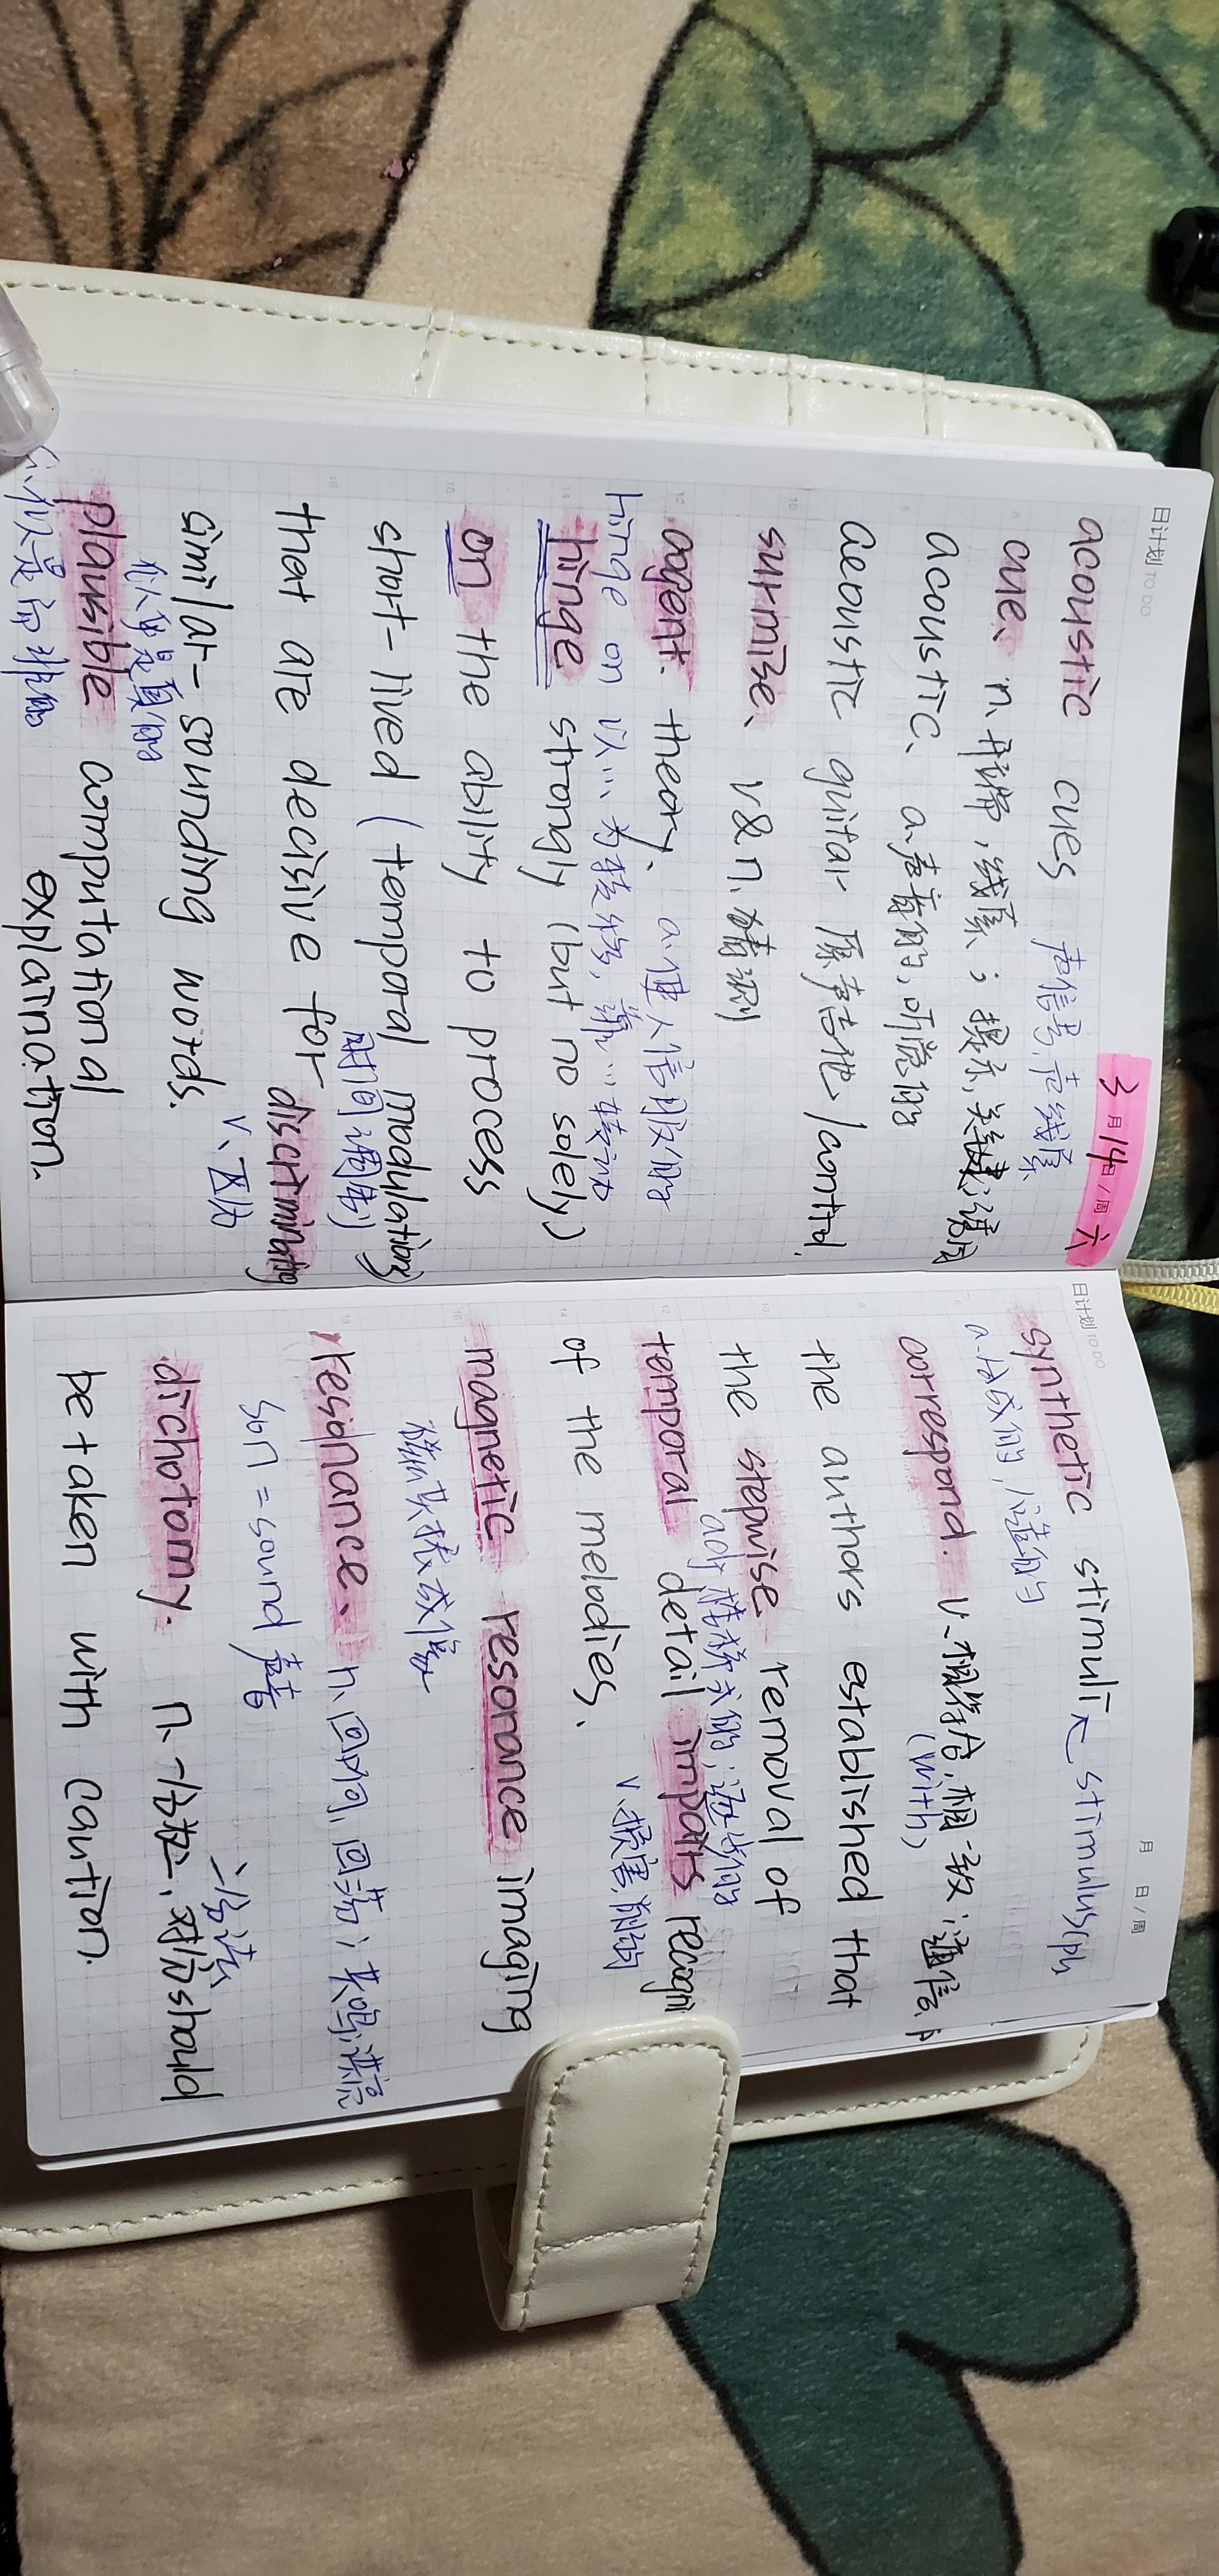 日计划 TO DO
3月14日/周六
acoustic cues 声信号,声线索
cue、n.暗示,线索;提示,关键;诱因
acoustic、a.声音的,听觉的
acoustic guitar 原声吉他/control
surmise、v&n.猜测
cogent. theory. a.使人信服的
hinge on 以…为转移,靠…转动
hinge strongly (but no solely)
on the ability to process
short-lived (temporal modulations)
时间调制
that are decisive for discriminating
v、区分
similar-sounding words.
似乎是真的
plausible computational
似是而非的
explanation.
日计划 TO DO
月 日/周
synthetic stimuli ← stimulus(pl)
a.合成的,人造的
correspond. v、相符合,相一致;通信
(with)
the authors established that
the stepwise. removal of
adj 楼梯式的;逐步的
temporal detail impairs recogni
v.损害,削弱
of the melodies、
magnetic resonance imaging
磁共振成像
resonance、n.回响,回荡;共鸣;共振
son=sound 声音
二分法
dichotomy. n.一分为二,对分should
be taken with caution.